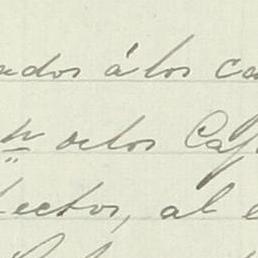 ados á los ca
n de los Caf
lectos, al e